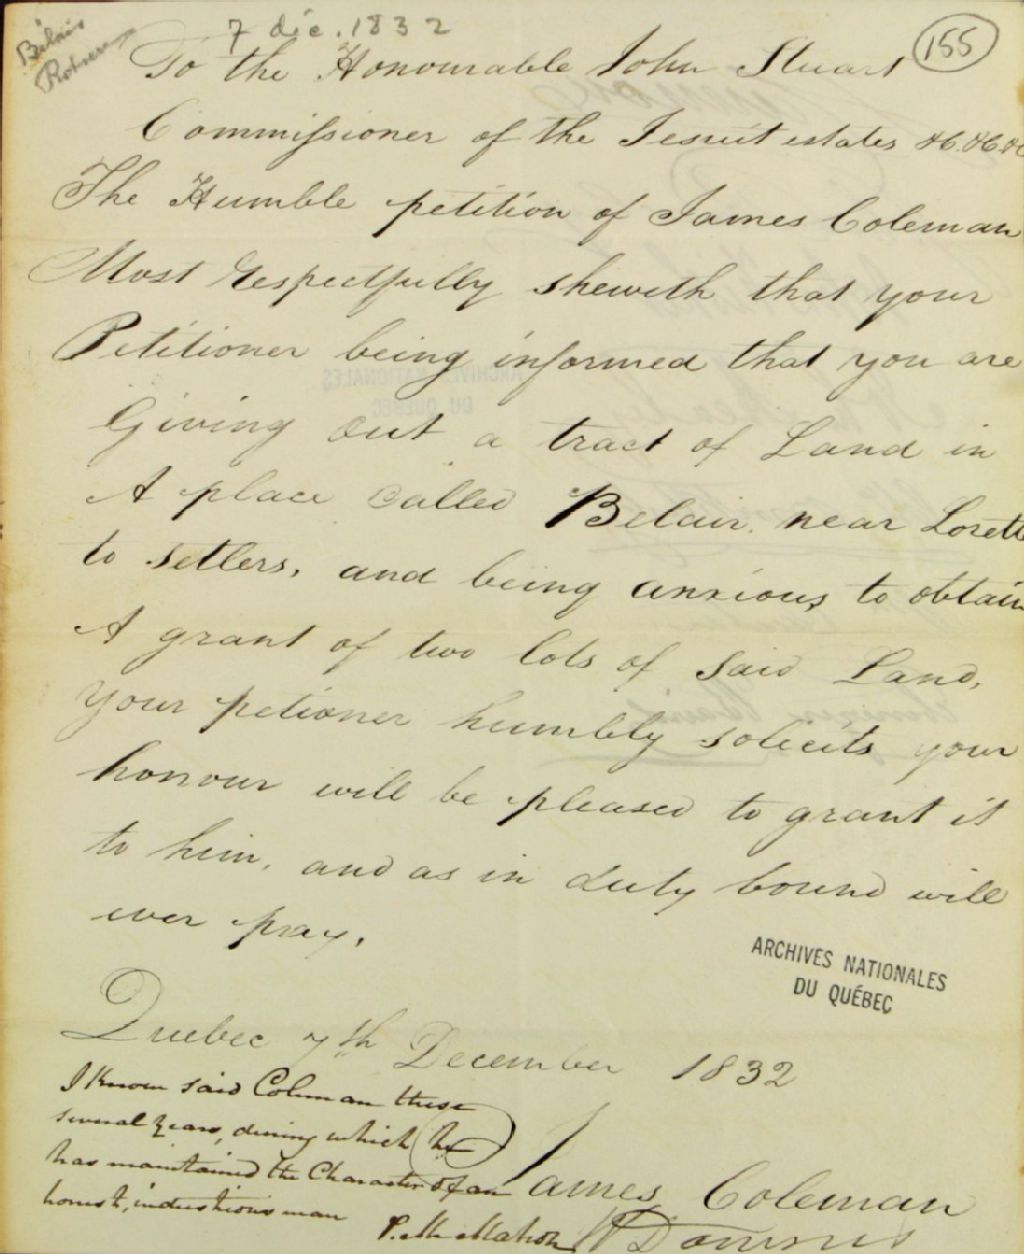 7 déc. 1832
155
Bélair
To the Honourable John Stuart
Commissioner of the Jesuit estates &c. &c. &c
The Humble petition of James Coleman
Most Respectfully sheweth that your
Petitioner being informed that you are
Giving out a tract of Land in
A place Called Belair near Lorette
to setlers, and being anxious to obtain
A grant of two lots of Said Land,
Your petioner humbly solicits your
honour will be pleased to grant it
to him, and as in duty bound will
ever pray.
ARCHIVES NATIONALES
DU QUÉBEC
Quebec 7th December 1832
I Know said Coleman these
several years, during which he
has maintained the Character of an
honest, industrious man
P. McMahon
James Coleman
ARCHIVES NATIONALES
DU QUÉBEC